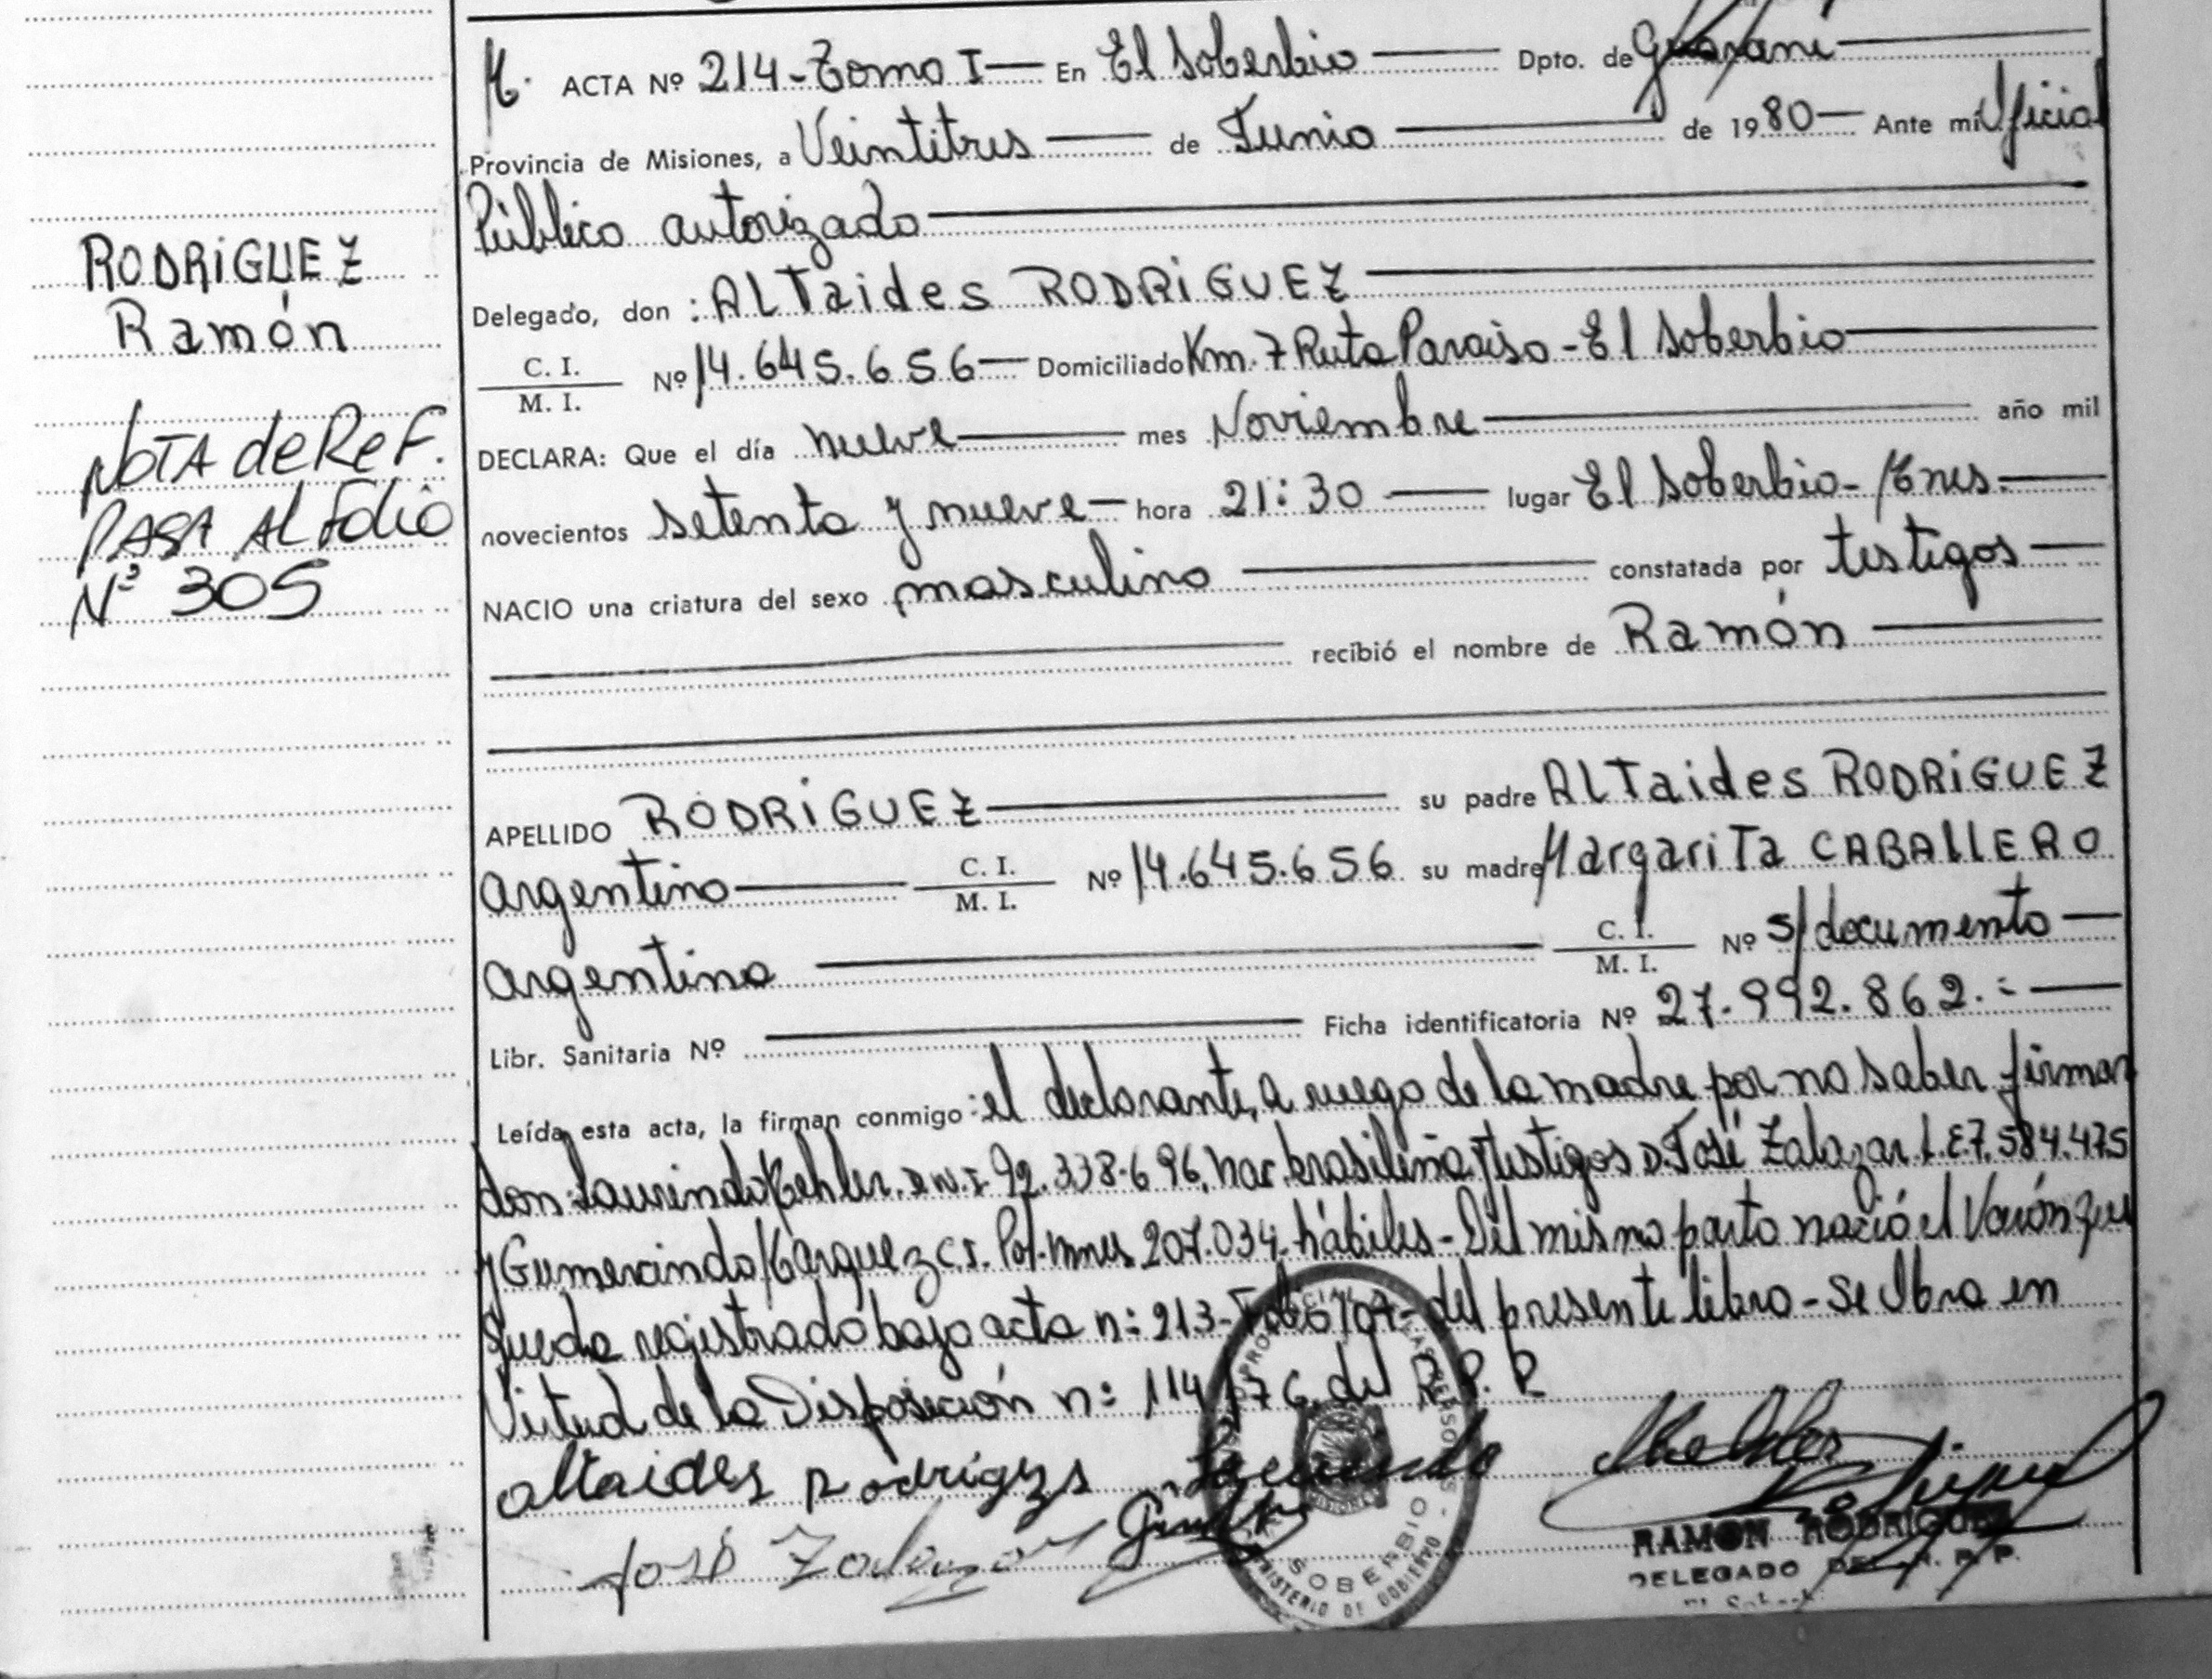 RODRiGUEZ
Ramón
NOTA de ReF.
PASA Al Folio
Nº 305
M. ACTA Nº 214-Tomo I — En El Soberbio — Dpto. de Guaraní —
Provincia de Misiones, a Veintitres — de Junio — de 1980 — Ante mi Oficial
Público autorizado —
Delegado, don : AlTaides RODRiGUEZ —
C. I. / M. I. Nº 14.645.656 — Domiciliado Km. 7 Ruta Paraiso - El Soberbio —
DECLARA: Que el día nueve — mes Noviembre — año mil
novecientos setenta y nueve — hora 21:30 — lugar El Soberbio - Mnes. —
NACIO una criatura del sexo masculino — constatada por testigos —
— recibió el nombre de Ramón —
APELLIDO RODRiGUEZ — su padre AlTaides RODRiGUEZ
argentino — C. I. / M. I. Nº 14.645.656 su madre MargariTa CABAllERO
argentina — C. I. / M. I. Nº s/documento —
Libr. Sanitaria Nº — Ficha identificatoria Nº 27.992.862.- —
Leída esta acta, la firman conmigo : el declarante, a ruego de la madre por no saber firmar
don Laurindo D.N.I. 92.338.696, nac. brasileña y testigos D. José Zalazar L.E. 7.584.475
y Gumercindo Marquez C.I. Pol. Mnes. 207.034. hábiles - Del mismo parto nació el Varón que
queda registrado bajo acta n: 213 - Folio 107 - del presente libro - Se labra en
Virtud de la Disposición n: 114/76 del R.P.P.
altaides rodrigys
José Zalazar
SOBERBIO
MINISTERIO DE GOBIERNO
RAMON RODRIGUEZ
DELEGADO DEL R. P. P.